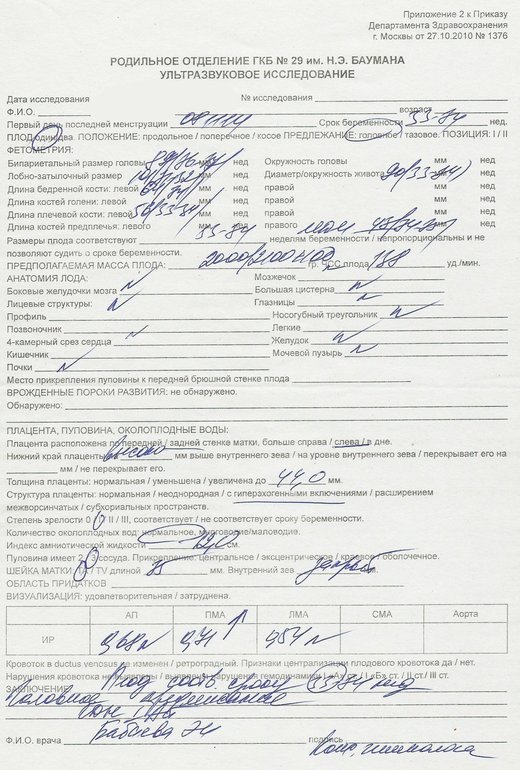 Приложение 2 к Приказу
Департамента Здравоохранения
г. Москвы от 27.10.2010 № 1376
РОДИЛЬНОЕ ОТДЕЛЕНИЕ ГКБ № 29 им. Н.Э. БАУМАНА
УЛЬТРАЗВУКОВОЕ ИССЛЕДОВАНИЕ
Дата исследования № исследования
Ф.И.О. возраст
Первый день последней менструации Срок беременности 33-34 нед.
ПЛОД один два. ПОЛОЖЕНИЕ: продольное / поперечное / косое ПРЕДЛЕЖАНИЕ: головное / тазовое. ПОЗИЦИЯ: I / II
ФЕТОМЕТРИЯ:
Бипариетальный размер головы мм нед Окружность головы мм нед
Лобно-затылочный размер мм нед Диаметр/окружность живота 90 (33-34) мм нед
Длина бедренной кости: левой мм нед правой мм нед
Длина костей голени: левой мм нед правой мм нед
Длина плечевой кости: левой мм нед правой мм нед
Длина костей предплечья: левого мм нед правого мм нед
Размеры плода соответствуют 33-34 неделям беременности / непропорциональны и не
позволяют судить о сроке беременности.
ПРЕДПОЛАГАЕМАЯ МАССА ПЛОДА: гр. ЧСС плода 138 уд./мин.
АНАТОМИЯ ЛОДА: Мозжечок
Боковые желудочки мозга N Большая цистерна N
Лицевые структуры: N Глазницы N
Профиль Носогубный треугольник N
Позвоночник N Легкие
4-камерный срез сердца N Желудок N
Кишечник Мочевой пузырь N
Почки N
Место прикрепления пуповины к передней брюшной стенке плода
ВРОЖДЕННЫЕ ПОРОКИ РАЗВИТИЯ: не обнаружено.
Обнаружено:
ПЛАЦЕНТА, ПУПОВИНА, ОКОЛОПЛОДНЫЕ ВОДЫ:
Плацента расположена по передней / задней стенке матки, больше справа / слева / в дне.
Нижний край плаценты высоко мм выше внутреннего зева / на уровне внутреннего зева / перекрывает его на
мм / не перекрывает его.
Толщина плаценты: нормальная / уменьшена / увеличена до 44,0 мм.
Структура плаценты: нормальная / неоднородная / с гиперэхогенными включениями / расширением
межворсинчатых / субхориальных пространств.
Степень зрелости 0 I II / III, соответствует / не соответствует сроку беременности.
Количество околоплодных вод: нормальное, многоводие/маловодие.
Индекс амниотической жидкости см.
Пуповина имеет 2 3 сосуда. Прикрепление: центральное / эксцентрическое / краевое / оболочечное.
ШЕЙКА МАТКИ: TA / TV длиной 35 мм. Внутренний зев закрыт
ОБЛАСТЬ ПРИДАТКОВ
ВИЗУАЛИЗАЦИЯ: удовлетворительная / затруднена.
АП ПМА ЛМА СМА Аорта
ИР 0,68 N 0,71 ↑ 0,54 N
Кровоток в ductus venosus не изменен / ретроградный. Признаки централизации плодового кровотока да / нет.
Нарушения кровотока не выявлены / выявлены нарушения гемодинамики I «А» ст. / I «Б» ст. / II ст. / III ст.
ЗАКЛЮЧЕНИЕ: Плод соотв. сроку (33)/34 нед
Головное предлежание
Ф.И.О. врача подпись
Конс. гинеколога